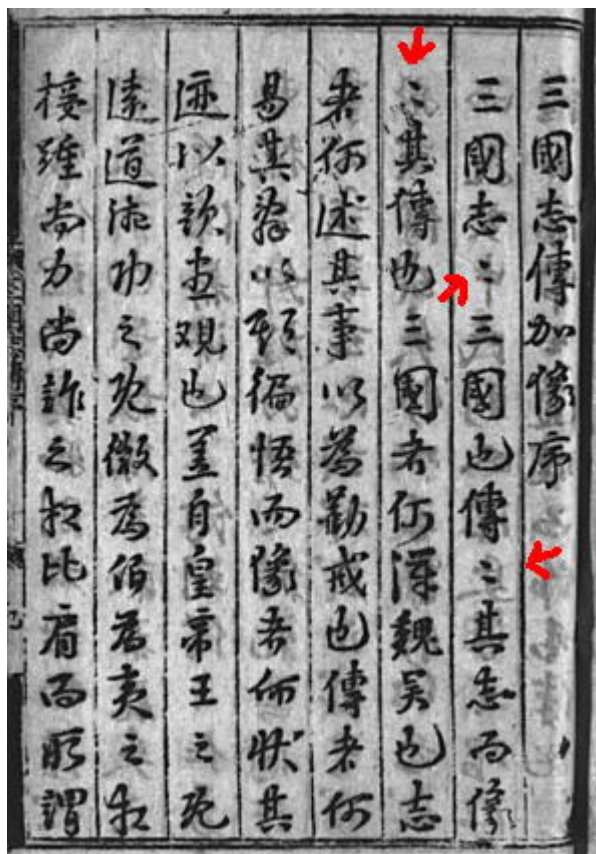 三國志傳加像序
三國志〻三國也傳〻其志而像
〻其傳也三國者何漢魏吳也志
者何述其事以為勸戒也傳者何
易其辞以期徧悟而像者何狀其
迹以欲盡观也盖自皇帝王之既
遠道德功之既微為伯為夷之相
接踵尚力尚詐之相比肩而所謂